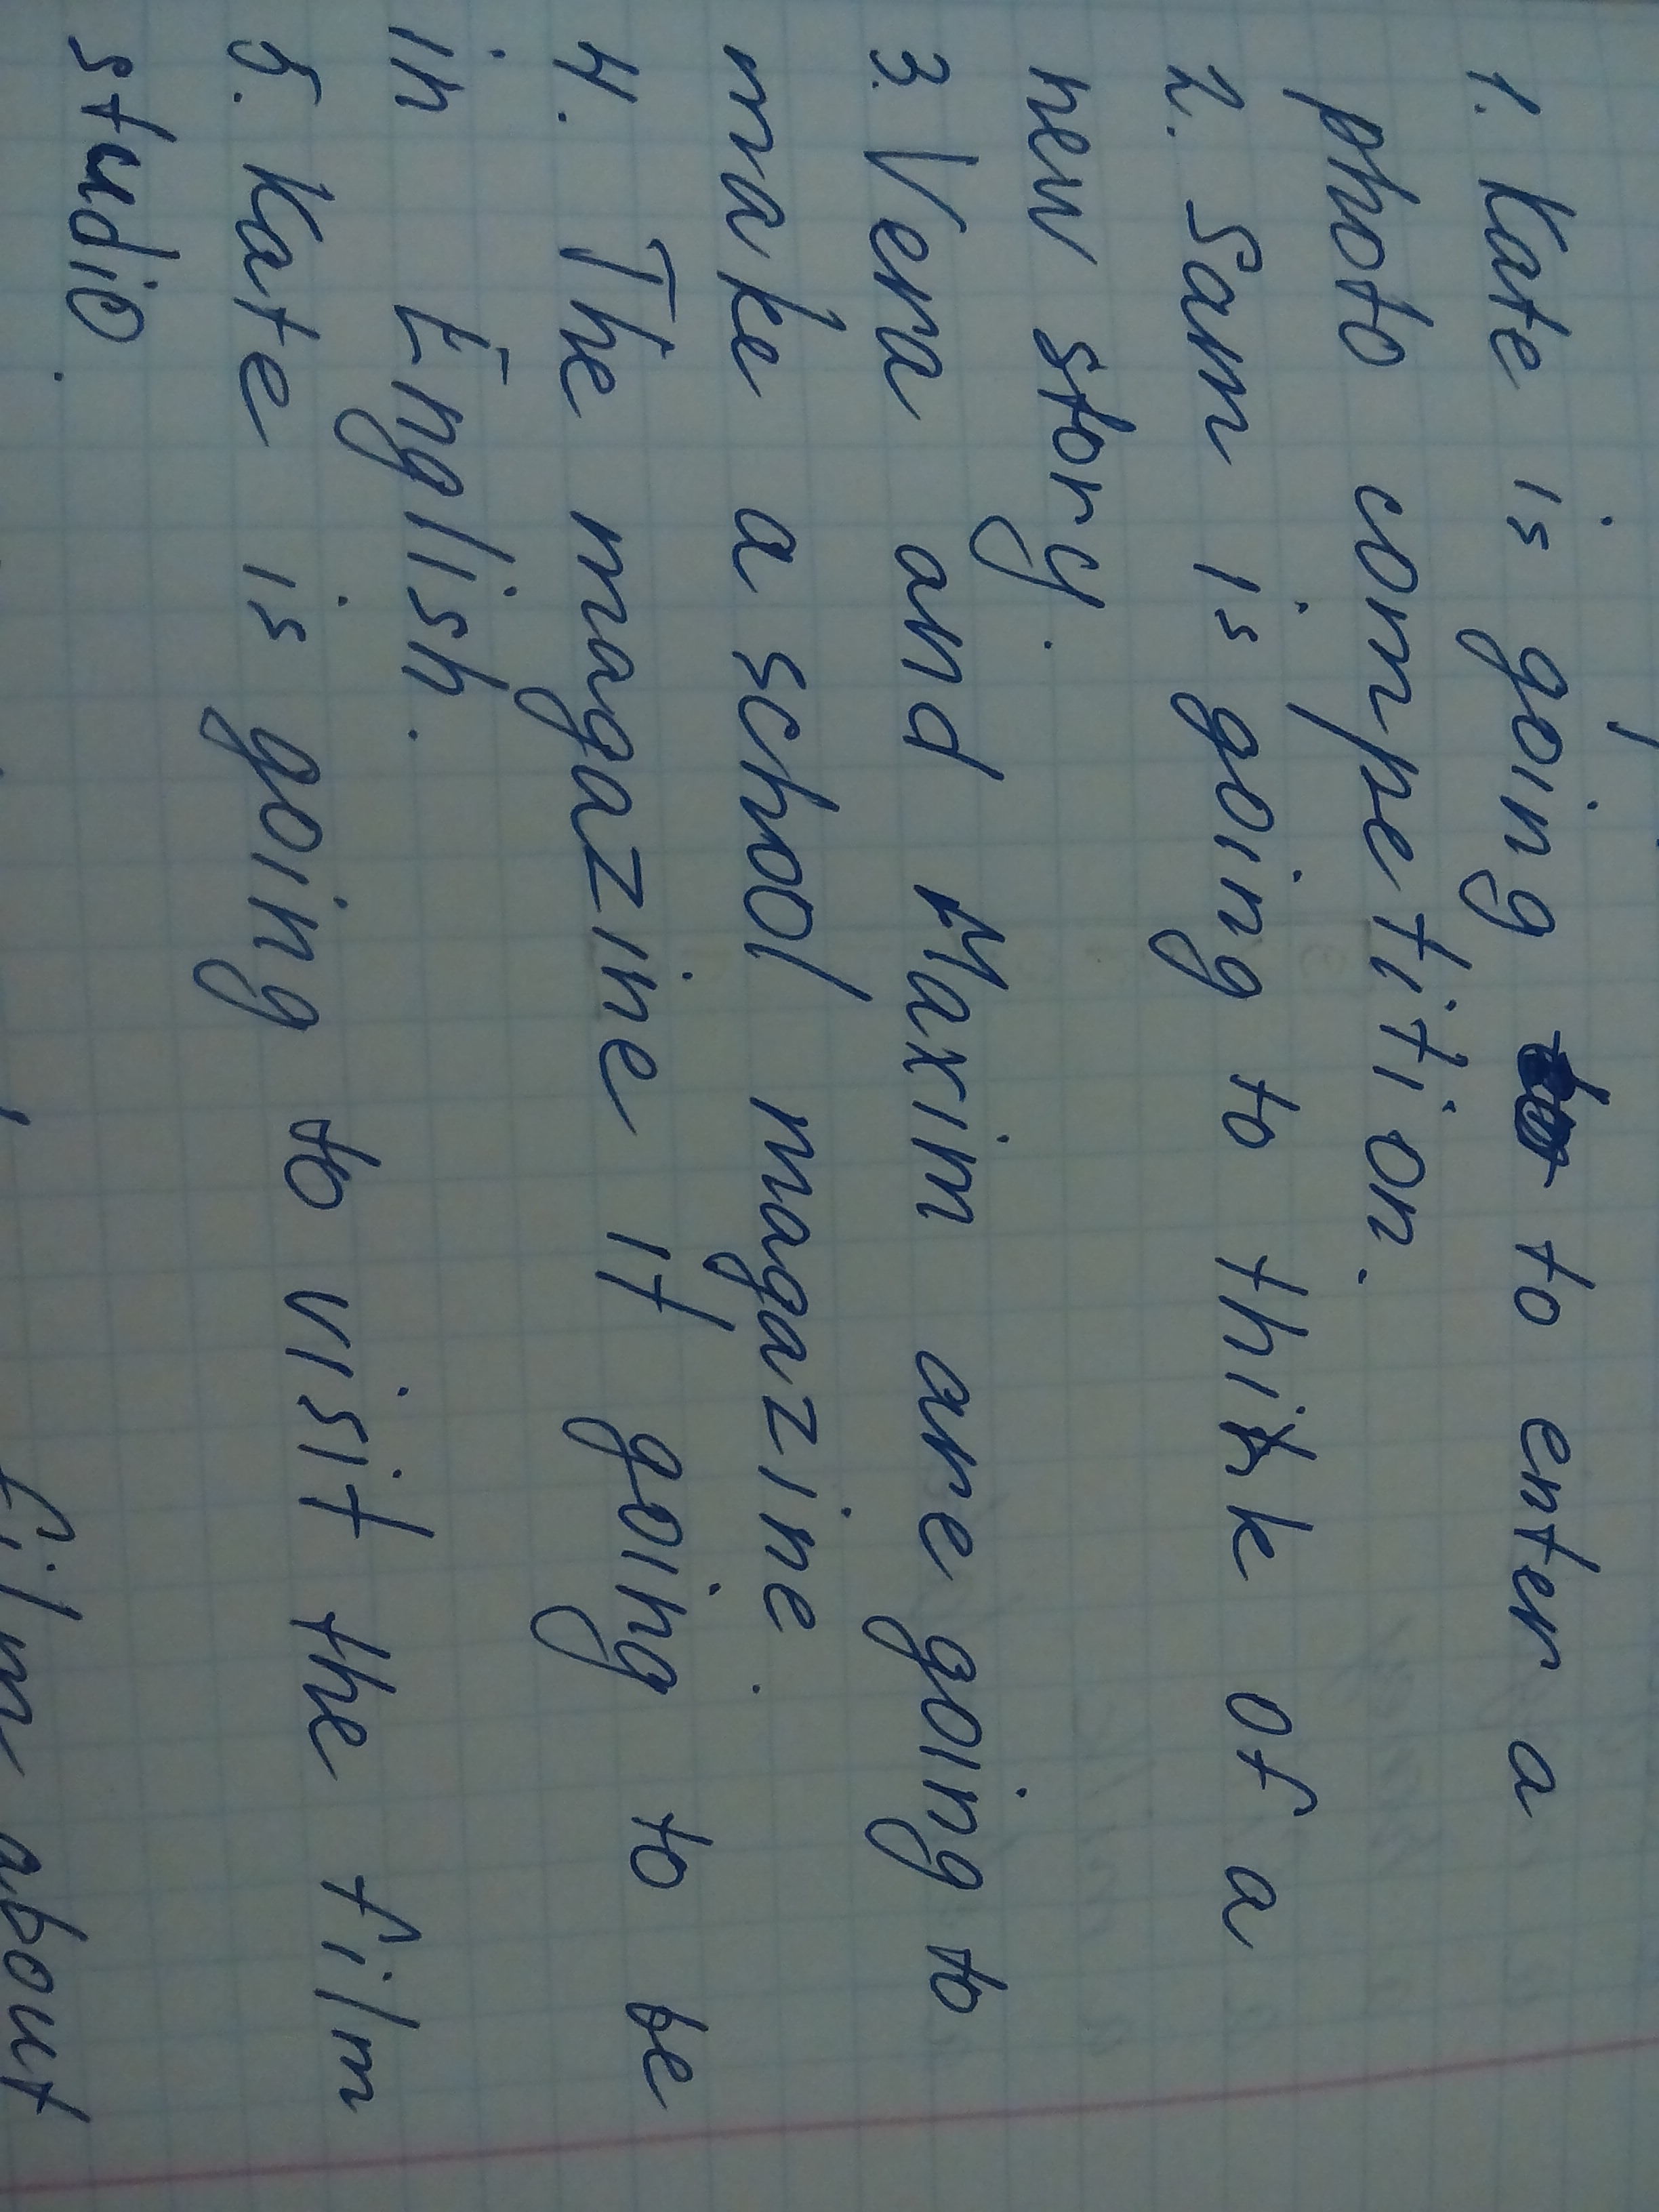 1. Kate is going to enter a
photo competition.
2. Sam is going to think of a
new story.
3. Vera and Maxim are going to
make a school magazine.
4. The magazine it going to be
in English.
5. Kate is going to visit the film
studio.
film about